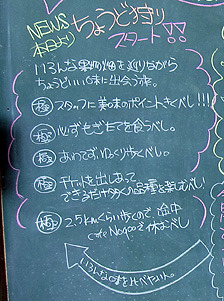 NEWS
本日より
ちょうど狩り
スタート!!
いろんな果物畑を巡りながら
ちょうどいい味に出会う旅。
極 スタッフに美味のポイントをきくべし!!!
極 必ずもぎたてを食うべし。
極 あわてずゆっくり歩くべし。
極 チケットを出しあって
できるだけ多くの品種を楽しむべし!
極 2.5kmくらい歩くので、途中
cafe Noqooで休むべし
いろんな